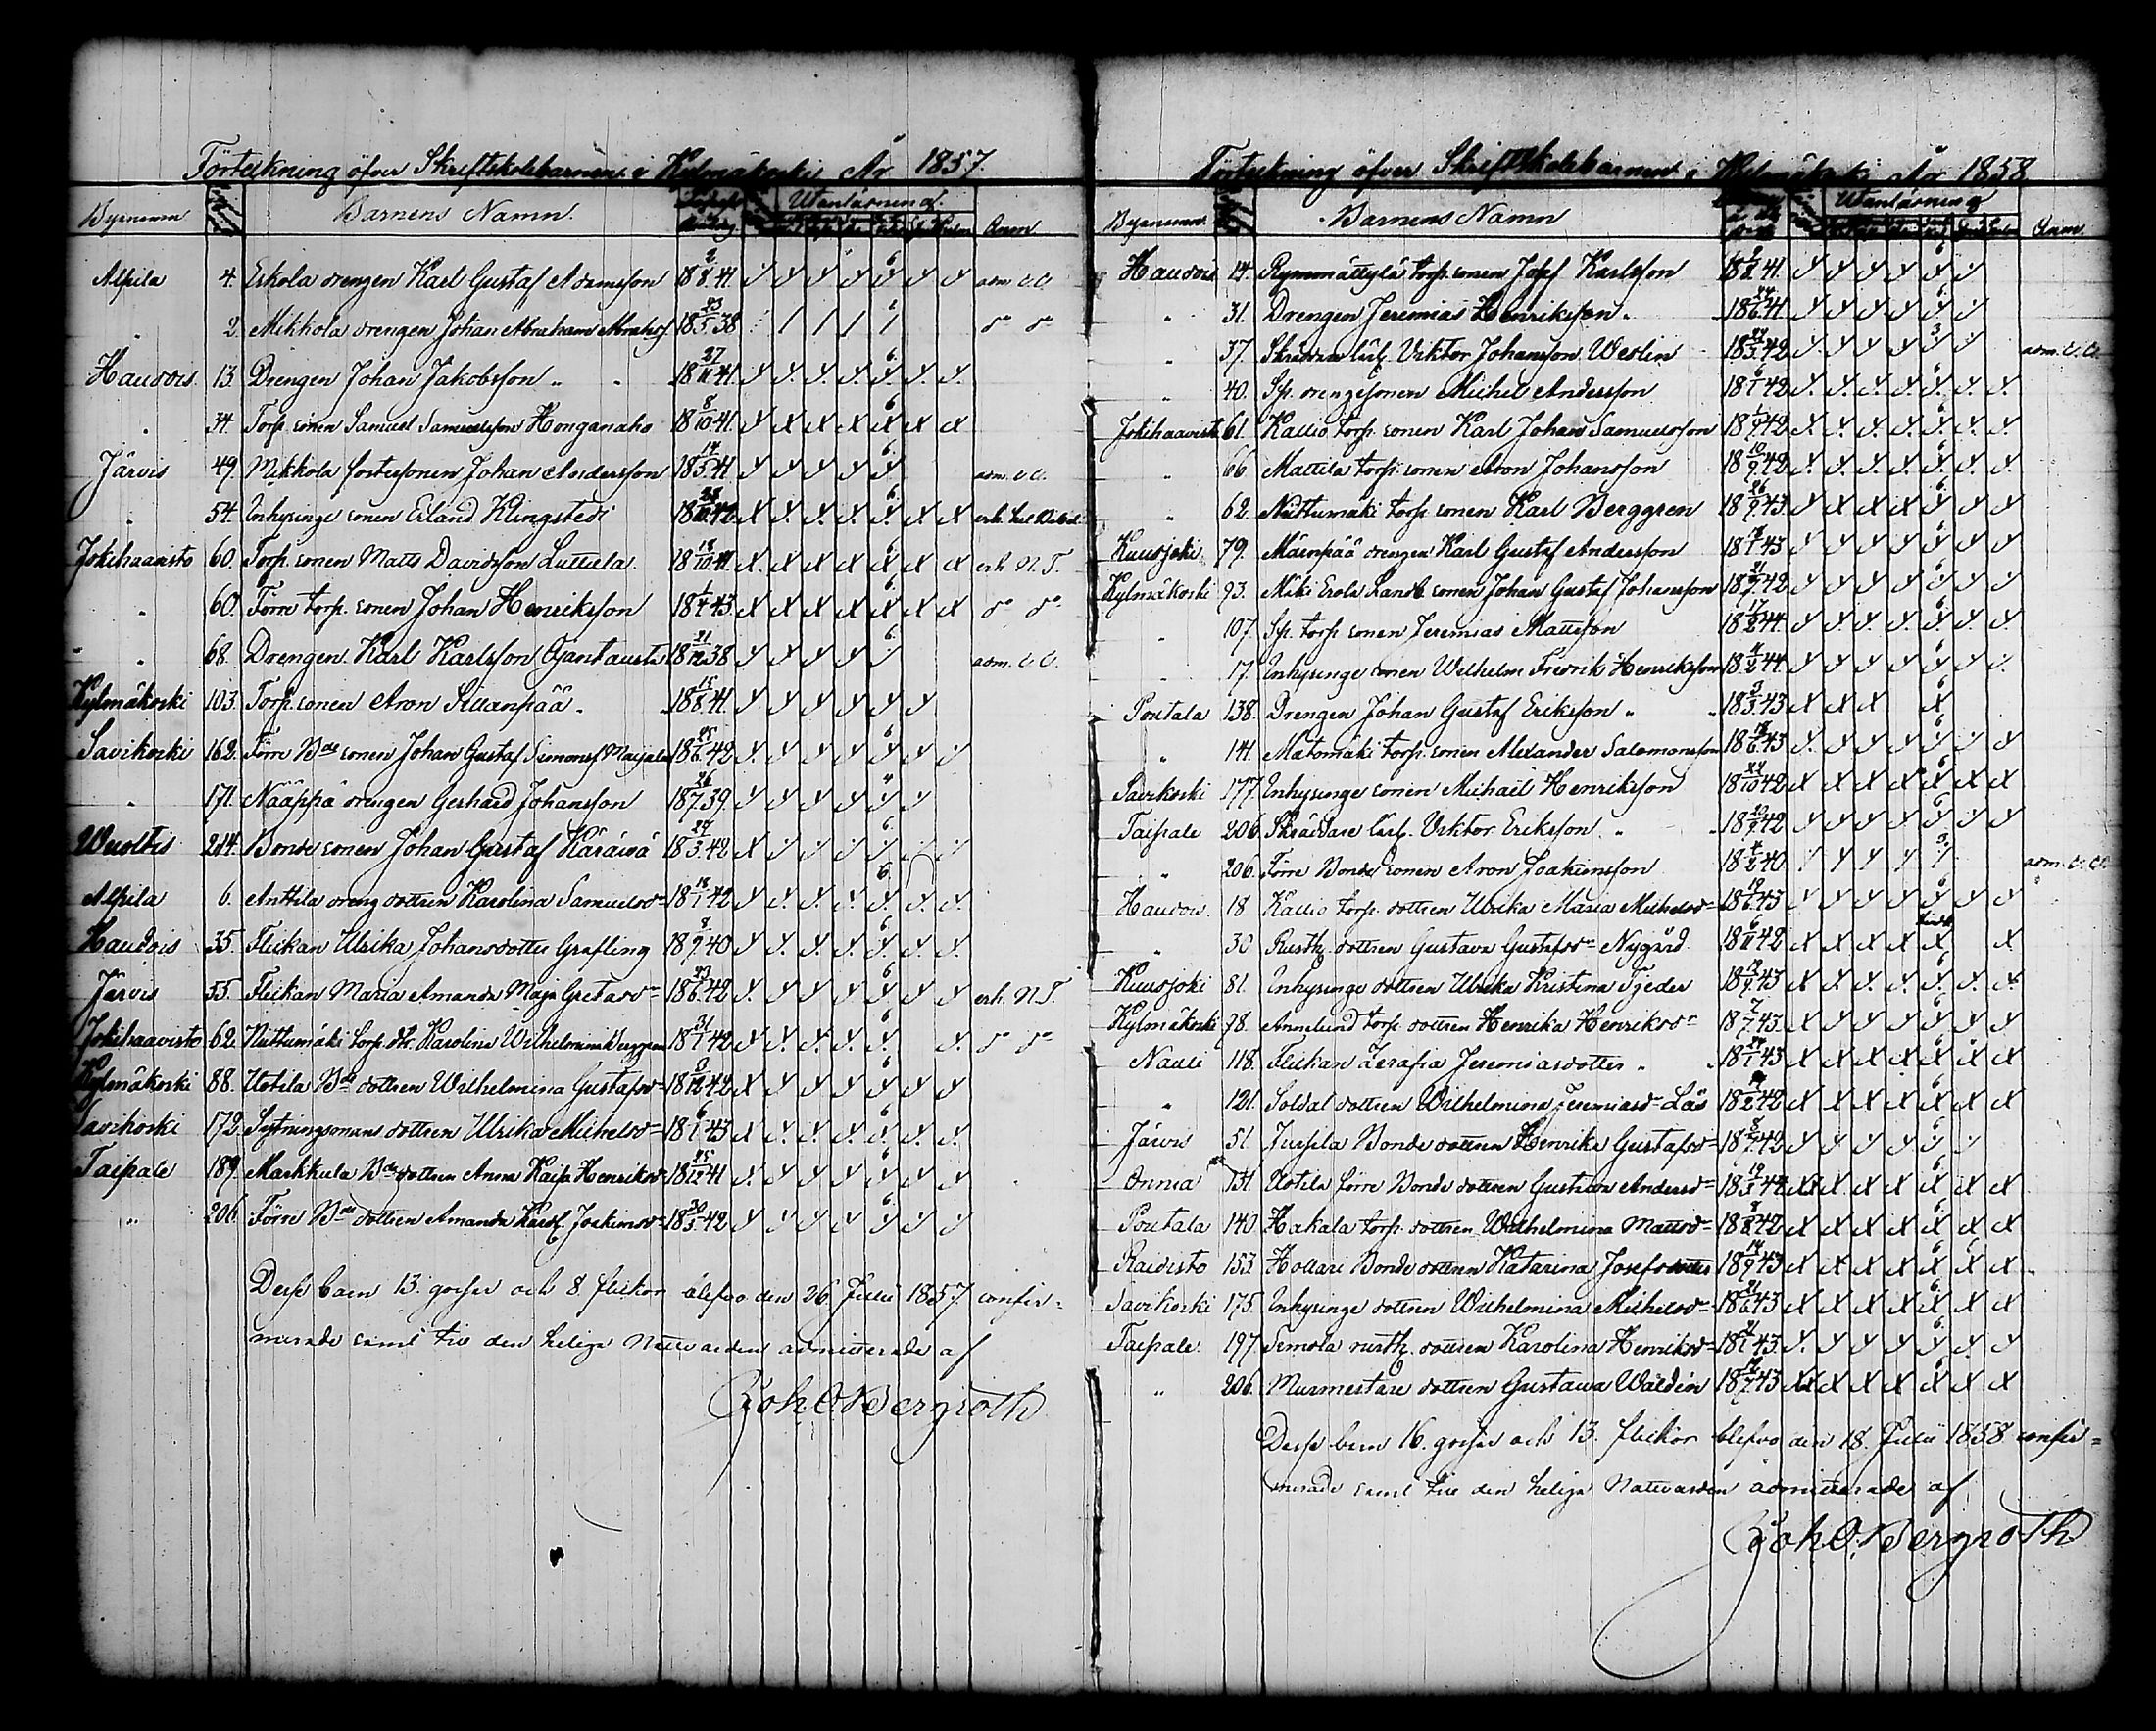 Förteckning öfver Skriftskolebarnen i Kylmäkoski År 1857.
Bynamn Barnens Namn. Utanläsning. Anm.
Alpila 4. Eskola drengen Karl Gustaf Adamsson 18 2/8 41. adm. c.c.
" 2. Mikkola drengen Johan Abraham Abrahsf 18 23/5 38 6 do do
Haudois. 13. Drengen Johan Jakobsson " " 18 27/11 41. 6.
" 34. Torp. sonen Samuel Samuelsson Honganaho 18 8/10 41. 6
Järvis 49. Mikkola fostersonen Johan Andersson 18 14/5 41 6. adm. c.c.
" 54. Inhysinge sonen Erland Klingstedt 18 28/10 42 6.
Jokihaavisto 60. Torp. sonen Matts Davidsson Luttula. 18 18/10 41. 6 erh. N.T.
" 60. Förre torp. sonen Johan Henriksson 18 1/4 43. 6. do do
" " 68. Drengen Karl Karlsson Ojantausta 18 21/12 38 6. adm. c.c.
Kylmäkoski 103. Torp. sonen Aron Sillanpää. 18 15/8 41. 6
Savikoski 162. Förre Bde sonen Johan Gustaf Simonsf Maijala 18 25/6 42 6
" 171. Nääppä drengen Gerhard Johansson 18 26/7 39.
Wuoltis 214. Bonde sonen Johan Gustaf Käräwä 18 27/3 42 6.
Alpila 6. Anttila dreng dottren Karolina Samuelsdr 18 18/1 42 6.
Haudois 35. Flickan Ulrika Johansdotter Grafling 18 8/9 40 6
Järvis 55. Flickan Maria Amanda Maja Gretasdr 18 23/6 42 6 erh. N.T.
Jokihaavisto 62. Nuttumäki torp. dtr. Karolina Wilhelmina Berggren 18 31/1 42 6 do do
Kylmäkoski 88. Uotila Bde dottren Wilhelmina Gustafsdr 18 3/12 42 6
Savikoski 172. Sytningsmans dottren Ulrika Michelsdr 18 6/1 43 6
Taipale 189. Markkula Bde dottren Anna Kaisa Henriksdr 18 25/12 41 6
" 206. Förre Bde dottren Amanda Karol. Joakimsdr 18 30/5 42 6.
Desse barn 13. gossar och 8 flickor blefvo den 26 Julii 1857 confir=
merade samt till den heliga Nattvarden admitterade af
Joh O. Bergroth
Förteckning öfver Skriftskolebarnen i Kylmäkoski År 1858
Bynamn. Barnens Namn Utanläsning Anm.
Haudois 14. Rymmättylä torp. sonen Josef Karlsson 6
" 31. Drengen Jeremias Henriksson. 18 24/6 41 6
" 37. Skräddare lärl. Viktor Johansson Weslin 18 24/3 42 3 adm. c.c.
" 40. Sp. drengesonen Michel Andersson 18 6/1 42 6
Jokihaavisto 61. Kallio torp. sonen Karl Johan Samuelsson 18 1/9 42 6
" 66 Mattila torp. sonen Aron Johansson 18 10/9 42 6
" 62. Nuttumäki torp. sonen Karl Berggren 18 26/9 43. 6.
Kuusjoki 79. Mäenpää drengen Karl Gustaf Andersson 6
Kylmäkoski 93. Mäki Erola Landb. sonen Johan Gustaf Johansson 6
" 107. Sp. torp. sonen Jeremias Mattsson 18 17/2 44. 6
" 17. Inhysinge sonen Wilhelm Fredrik Henriksson 18 4/2 44. 6
Poutala 138. Drengen Johan Gustaf Eriksson " " 18 3/3 43 6
" 141. Matomäki torp. sonen Alexander Salomonsson 18 18/6 43 6
Savikoski 177. Inhysinge sonen Michaël Henriksson 18 24/10 42 6
Taipale 206 Skräddare lärl. Viktor Eriksson. " 18 20/9 42 6
" 206. Förre Bonde sonen Aron Joakimsson 18 4/2 40 3 adm. c.c.
Haudois. 18 Kallio torp. dottren Ulrika Maria Michelsdr 18 19/6 43 6
" 30 Rusth. dottren Gustava Gustafsdr Nygård 18 6/11 42
Kuusjoki 81. Inhysinge dottren Ulrika Kristina Tjeder 18 12/9 43 6
Kylmäkoski 78. Annlund torp. dottren Henrika Henriksdr 18 7/7 43. 6
Nauli 118. Flickan Serafia Jeremiasdotter " " 18 24/1 43 6
" 121. Soldat dottren Wilhelmina Jeremiasdr Läs 6
Järvis 51. Jussila Bonde dottren Henrika Gustafsdr 18 8/9 42 6
Onnia 131. Uotila förre Bonde dottren Gustava Andersdr 18 19/3 42 6
Poutala 140 Hakala torp. dottren Wilhelmina Mattsdr 18 8/8 42 6
Raidisto 153. Hollari Bonde dottren Katarina Josefsdotter 18 14/9 43 6
Savikoski 175. Inhysinge dottren Wilhelmina Michelsdr 18 21/6 43 6
Taipale. 197 Simola rusth. dottren Karolina Henriksdr 18 21/1 43. 6.
" 206. Murmestare dottren Gustawa Waldén 18 12/7 43 6
Desse barn 16. gossar och 13. flickor blefvo den 18. Julii 1858 confir=
merade samt till den heliga Nattvarden admitterade af
Joh O. Bergroth